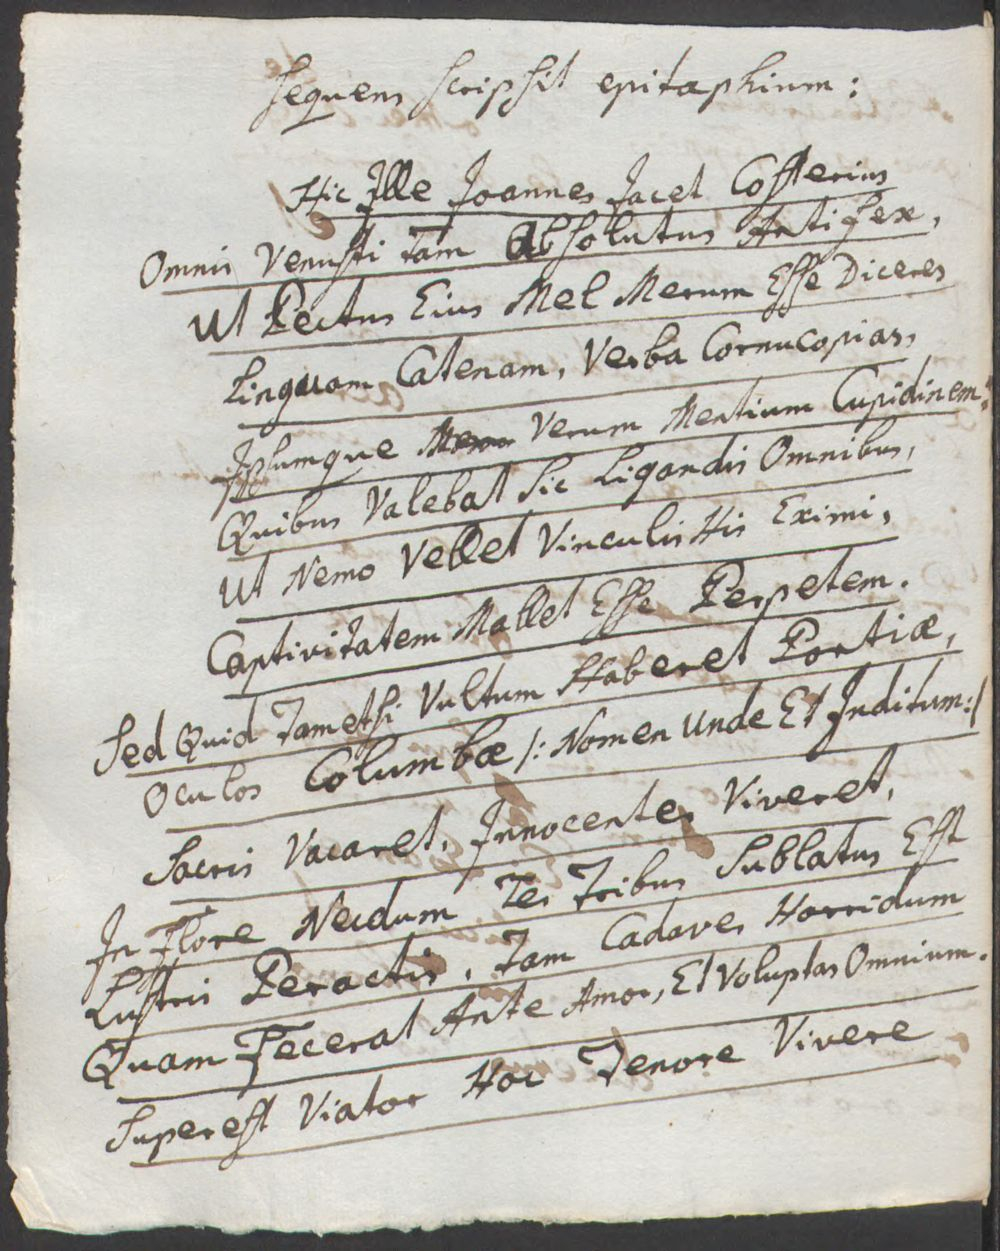 Sequens scripsit epitaphium:
Hic Ille Joannes Jacet Cofferius
Omnis Venusti Tam Absolutus Artifex,
Ut Pectus Eius Mel Merum Esse Diceres
Linguam Catenam, Verba Cornucopias,
Ipsumque Verum Mentium Cupidinem:
Quibus Valebat Sic Ligandis Omnibus,
Ut Nemo Vellet Vinculis His Eximi,
Captivitatem Mallet Esse Perpetem.
Sed Quid Tametsi Vultum Haberet Portiæ,
Oculos Columbæ /: Nomen Unde Et Inditum:/
Sacris Vacaret, Innocenter Viveret,
In Flore Necdum Ter Tribus Sublatus Est
Lustris Peractis, Jam Cadaver Horridum
Quam Fecerat Ante Amor, Et Voluptas Omnium.
Superest Viator Hoc Tenore Vivere